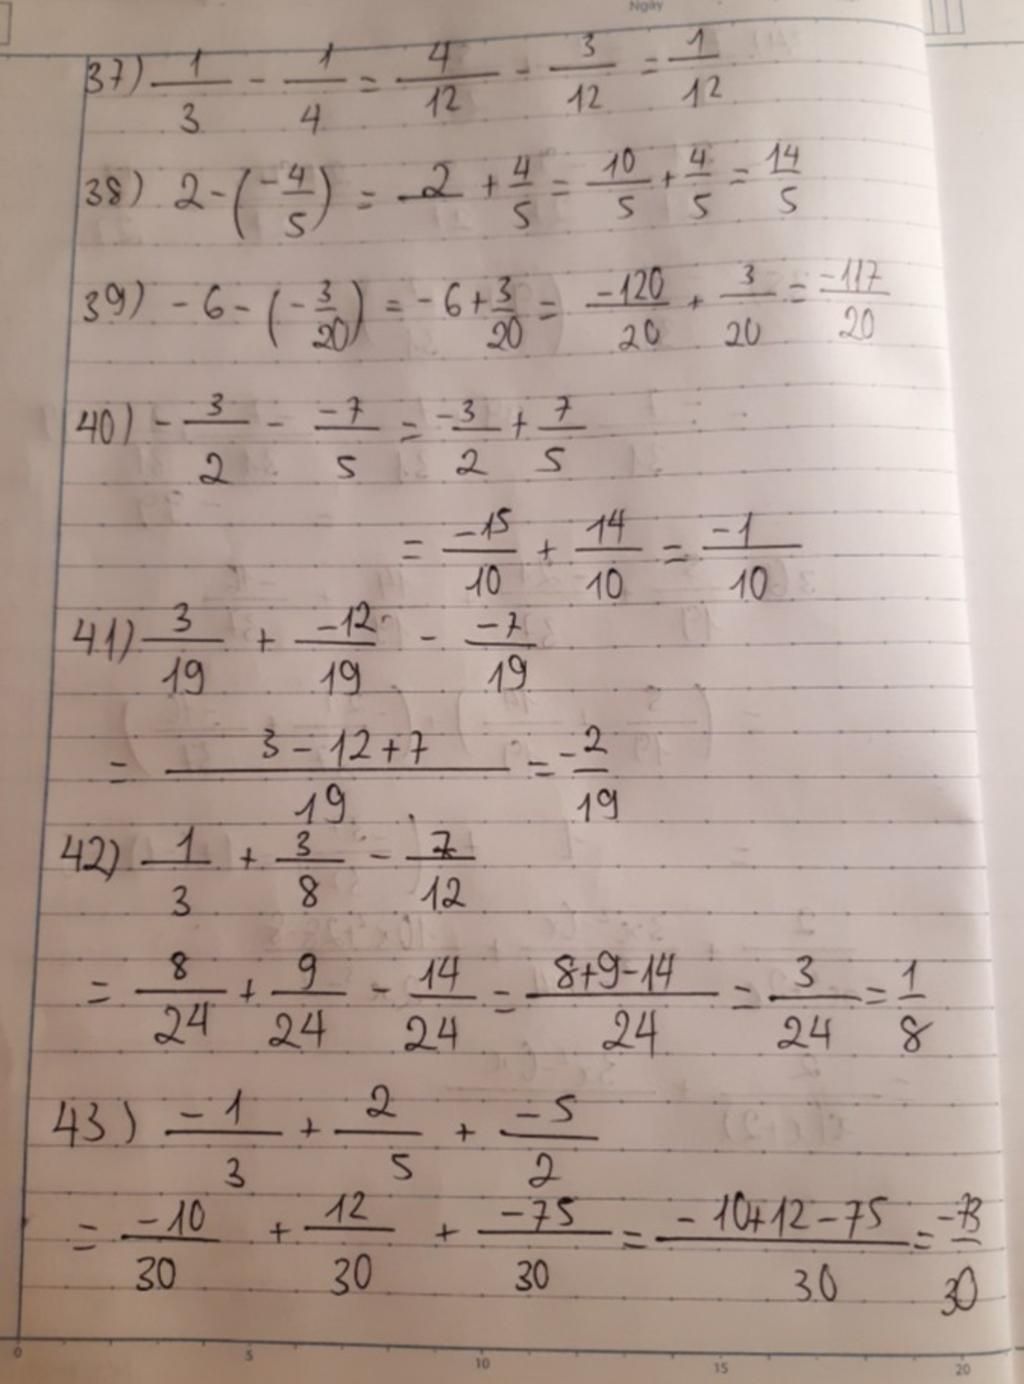 Ngày
37) 1/3 - 1/4 = 4/12 - 3/12 = 1/12
38) 2 - (-4/5) = 2 + 4/5 = 10/5 + 4/5 = 14/5
39) -6 - (-3/20) = -6 + 3/20 = -120/20 + 3/20 = -117/20
40) -3/2 - -7/5 = -3/2 + 7/5
= -15/10 + 14/10 = -1/10
41) 3/19 + -12/19 - -7/19
= 3-12+7/19 = -2/19
42) 1/3 + 3/8 - 7/12
= 8/24 + 9/24 - 14/24 = 8+9-14/24 = 3/24 = 1/8
43) -1/3 + 2/5 + -5/2
= -10/30 + 12/30 + -75/30 = -10+12-75/30 = -73/30
0 5 10 15 20